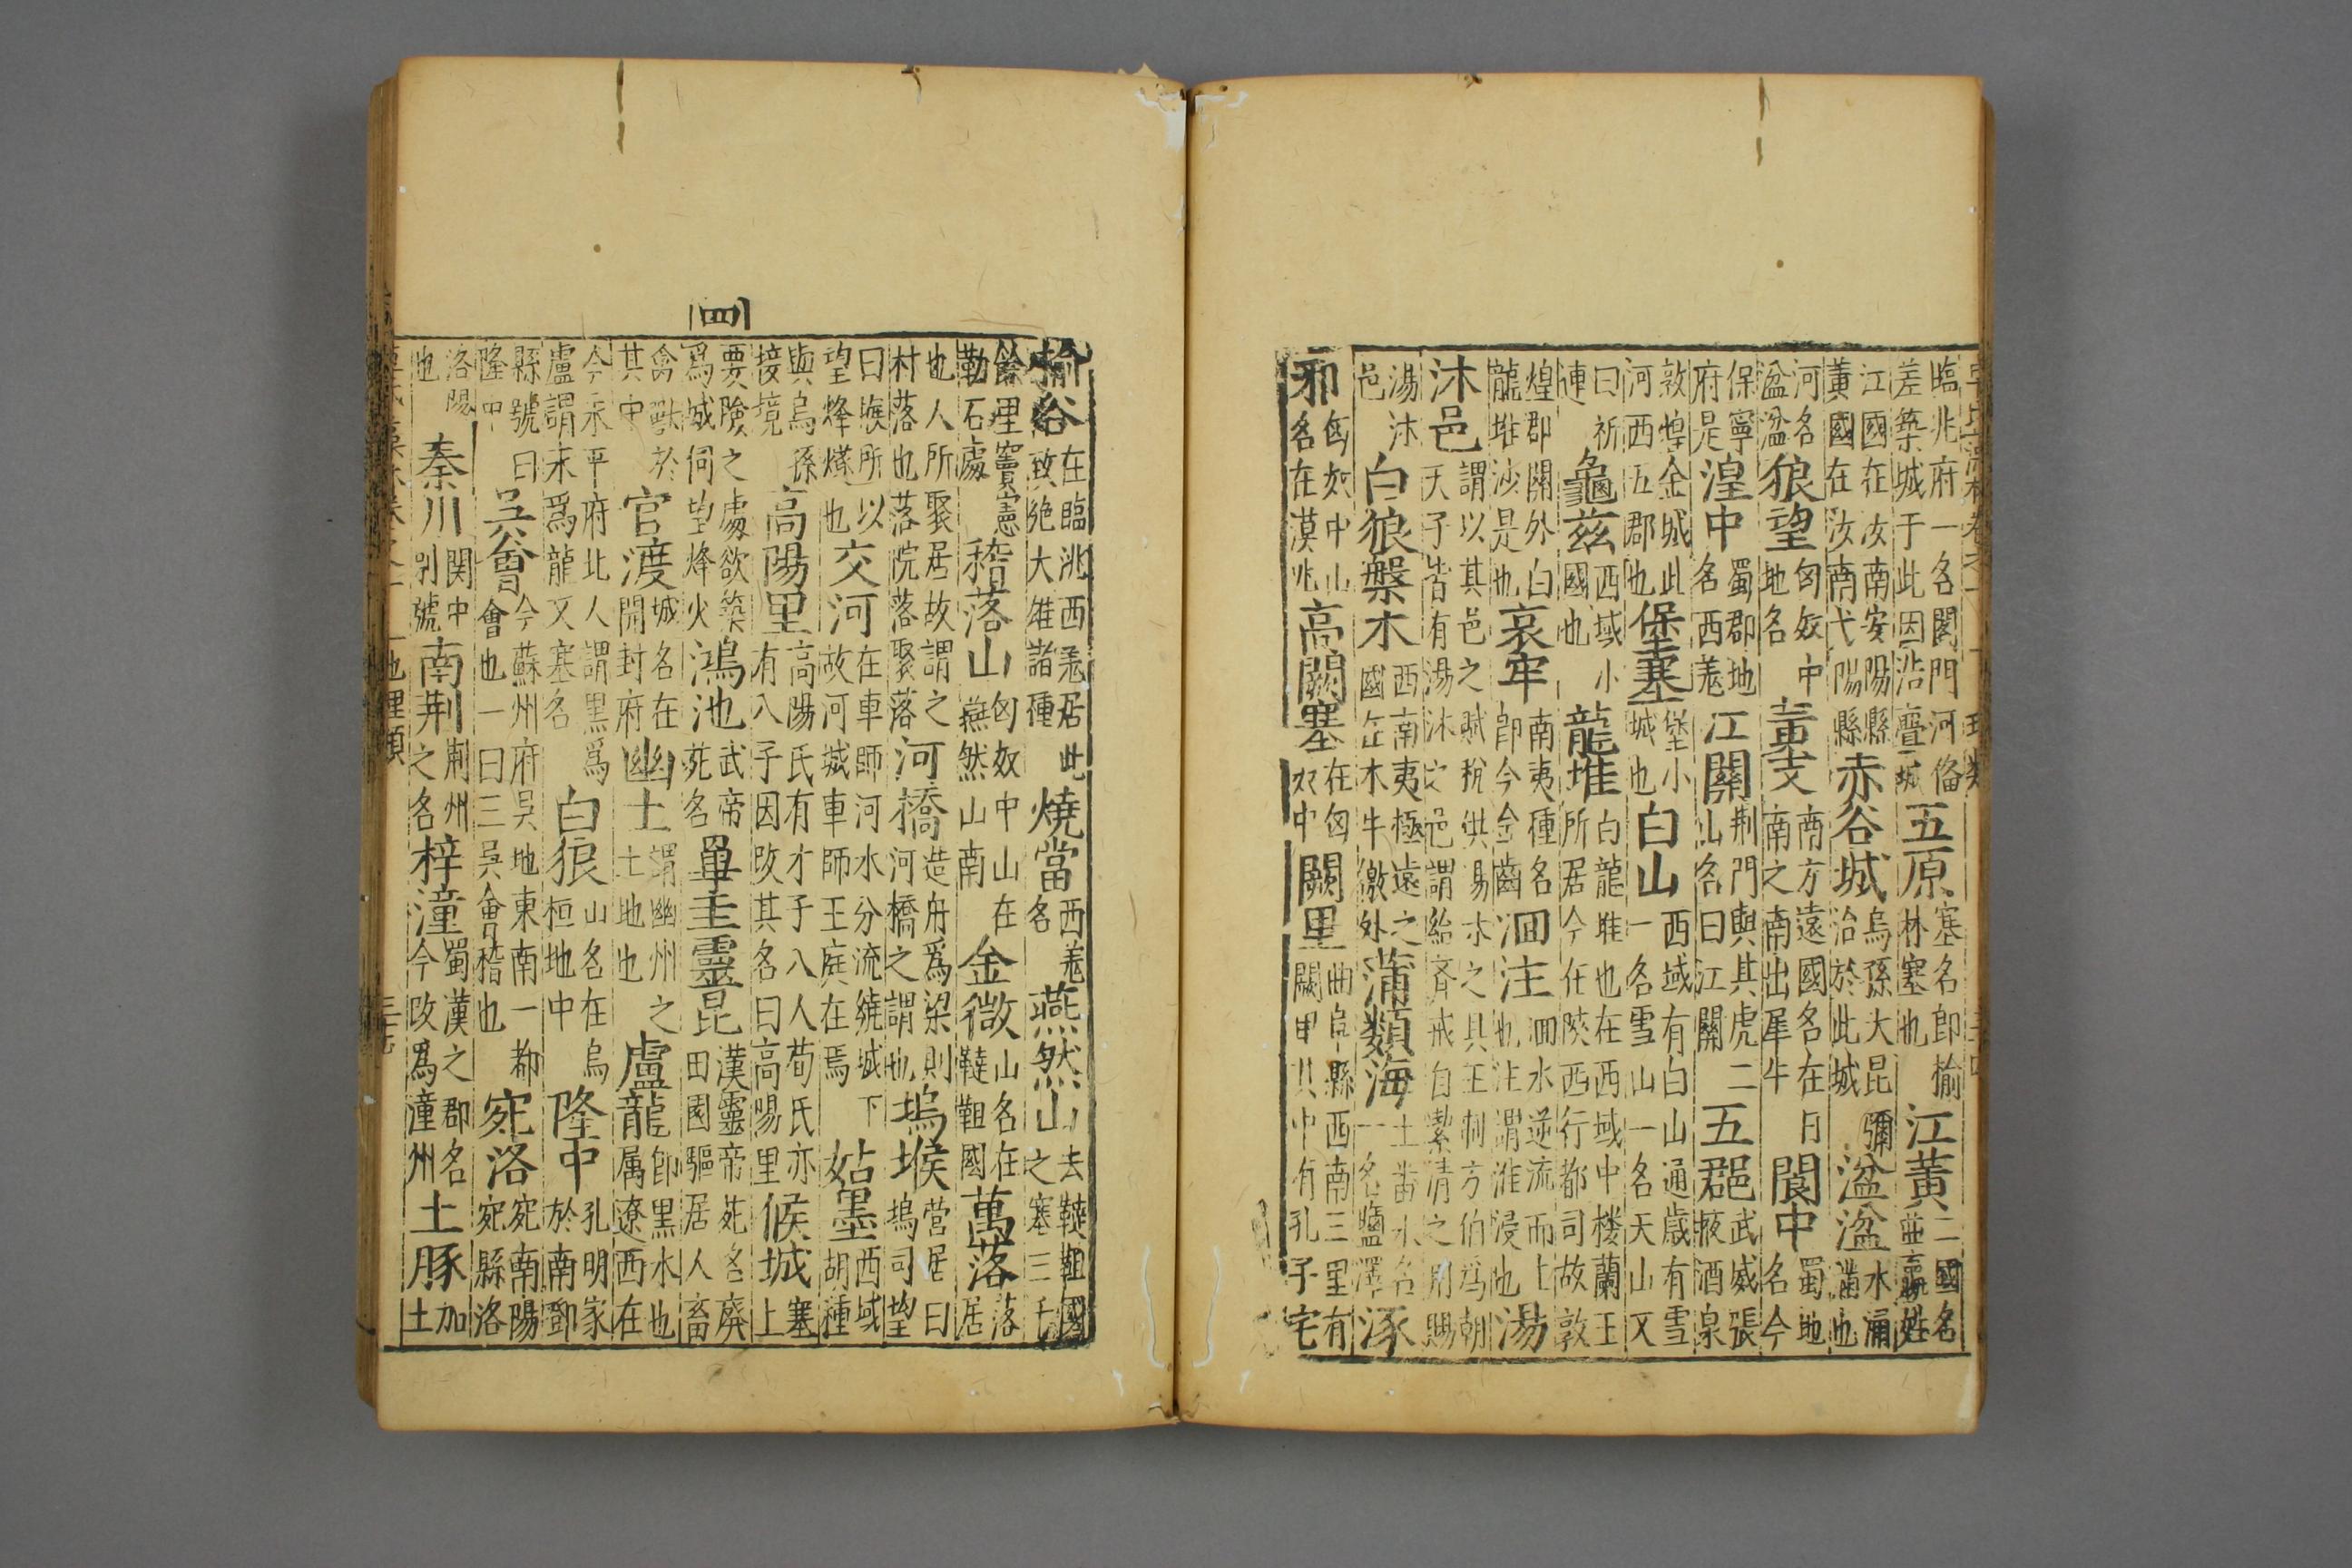 臨兆府一名閡門河偹五原塞名卽榆林塞也江黃二國名並嬴姓
差築城于此因沿
江國在汝南安陽縣黃國在汝南弋陽縣赤谷城烏孫大昆彌治於此城湓湓水涌滿也
河名湓湓狼望匈奴中地名黃支南方遠國名在日南之南南出犀牛閬中蜀地名今
保寧府是湟中蜀郡地名西羗江關荆門與其虎二山名曰江關五郡武威張掖酒泉
敦煌金城此河西五郡也堡塞堡小城也白山西域有白山通歲有雪一名雪山一名天山又
曰祈連龜茲西域小國也龍堆白龍堆也在西域中樓蘭王所居今在陝西行都司故敦
煌郡關外白龍堆沙是也哀牢南夷種名卽今金齒洄注洄水逆流而上也注謂浸也湯
沐邑謂以其邑之賦稅供湯沐之具王制方伯爲朝天子皆有湯沐之邑謂給齊戒自潔清之用賜
湯沐邑白狼槃木西南夷極遠之國在木牛徼外蒲類海土蕃水名一名鹽澤涿
邪匈奴中山名在漠兆高闕塞在匈奴中闕里曲阜縣西南三里有闕里其中有孔子宅
榆谷在臨洮西羗居此致絶大雄諸種燒當西羗名燕然山去韃靼國之塞三千
餘里竇憲勒石處稽落山匈奴中山在燕然山南金微山名在韃靼國萬落落居
也人所聚居故謂之村落也落院落聚落河橋造舟爲梁則河橋之謂也塢堠營居曰塢司望
曰堠所以望烽燧也交河在車師河水分流繞城下故河城車師王庭在焉姑墨西域胡種
與烏孫接境高陽里高陽氏有才子八人荀氏亦有八子因改其名曰高陽里候城塞上
要險之處欲築爲城伺望烽火鴻池武帝苑名單圭靈昆漢靈帝苑名廢田園驅居人畜
禽獸於其中官渡城名在開封府幽土謂幽州之土土地也盧龍卽黑水也属遼西在
今永平府北人謂黑爲盧謂水爲龍又塞名白狼山名在烏桓地中隆中孔明家於南鄧
縣號曰隆中吳會今蘇州府吳地東南一都會也一曰三吳會稽也宛洛宛南陽宛縣洛
洛陽也秦川関中別號南荆荆州之名梓潼蜀漢之郡名今改爲潼州土豚加土
四